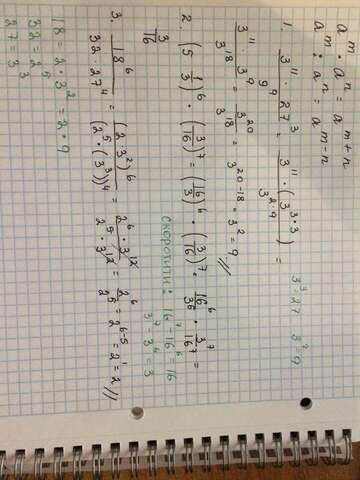 a^m · a^n = a^(m+n)
a^m : a^n = a^(m-n)
1. (3^11 · 27^3)/9^9 = (3^11 · (3^(3·3)))/3^(2·9) = 3^3=27 3^2=9
(3^11 · 3^9)/3^18 = 3^20/3^18 = 3^(20-18) = 3^2 = 9 //
2. (5 1/3)^6 · (3/16)^7 = (16/3)^6 · (3/16)^7 = 16^6/3^6 · 3^7/16^7 =
3/16 скоротити: 16^7 - 16^6 = 16
3^7 - 3^6 = 3
3. 18^6/(32 · 27^4) = (2·3^2)^6/(2^5 · (3^3)^4) = (2^6 · 3^12)/(2^5 · 3^12) = 2^6/2^5 = 2^(6-5) = 2^1 = 2 //
18 = 2 · 3^2 = 2 · 9
32 = 2^5
27 = 3^3